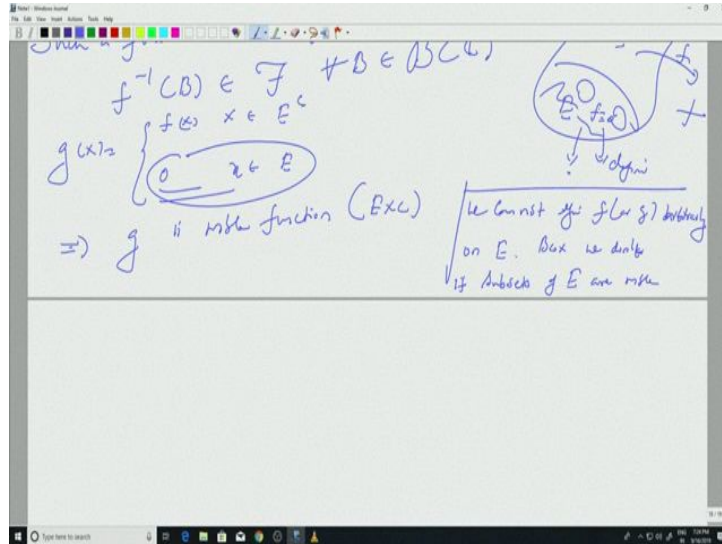 Note1 - Windows Journal
File Edit View Insert Actions Tools Help
Such a f
f⁻¹(B) ∈ F ∀ B ∈ B(ℂ)
g(x) = { f(x) x ∈ Eᶜ
0 x ∈ E
⇒ g is mble function (Exc)
f
E f=0
? defini
We cannot f (or g) arbitrarily
on E. Bcx we
if subsets of E are mble
Type here to search
ENG 7:24 PM
IN 9/16/2019